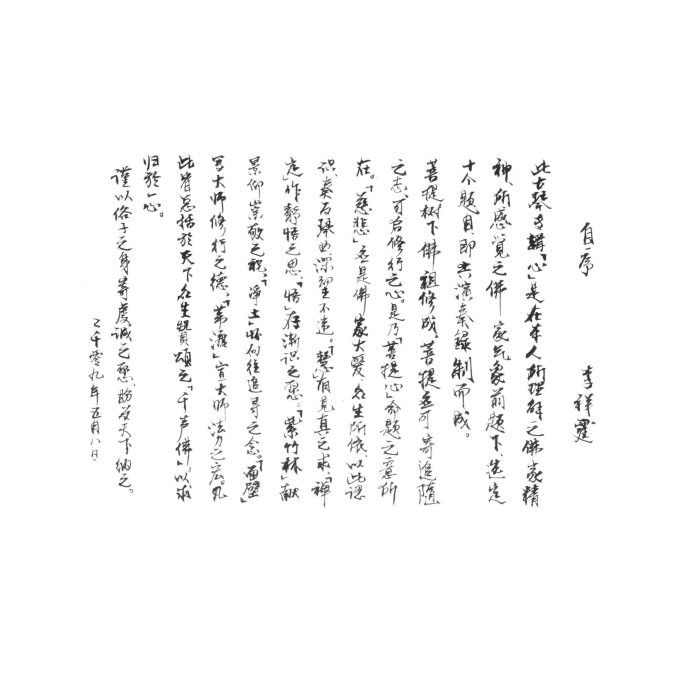 自序 李祥霆
此古琴专辑「心」是在本人所理解之佛家精
神、所感觉之佛家气象前题下、选定
十个题目即兴演奏录制而成。
菩提树下佛祖修成、菩提并可寄追随
之志、可启修行之心。是乃「菩提心」命题之意所
在。「慈悲」并是佛家大爱众生所依、以此认
识、奏百琴曲深望不违。「慧」有见真之求、「禅
定」作静悟之思、「悟」存渐识之愿。「紫竹林」献
景仰崇敬之祝、「净土」怀向往追寻之念、「面壁」
写大师修行之德、「苇渡」宣大师法力之宏。凡
此皆总括於天下众生赞颂之「千声佛」以求
归於一心。
谨以俗子之身寄虔诚之愿、盼及天下纳之。
二千零九年五月八日